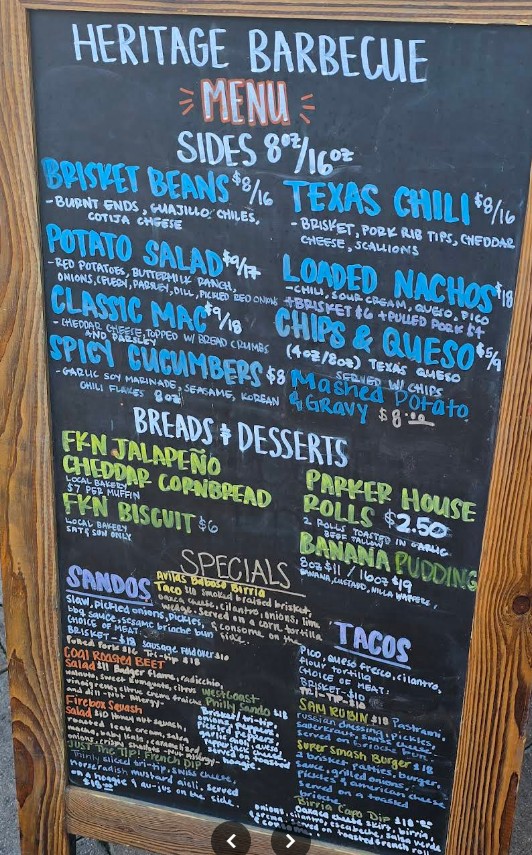 HERITAGE BARBECUE
MENU
SIDES 8oz/16oz
BRISKET BEANS $8/16
- BURNT ENDS, GUAJILLO CHILES,
COTIJA CHEESE
POTATO SALAD $9/17
- RED POTATOES, BUTTERMILK RANCH,
ONIONS, CELERY, PARSLEY, DILL, PICKED RED ONIONS
CLASSIC MAC $9/18
- CHEDDAR CHEESE, TOPPED W/ BREAD CRUMBS
AND PARSLEY
SPICY CUCUMBERS $8
- GARLIC SOY MARINADE, SEASAME, KOREAN
CHILI FLAKES 8oz
TEXAS CHILI $8/16
- BRISKET, PORK RIB TIPS, CHEDDAR
CHEESE, SCALLIONS
LOADED NACHOS $18
- CHILI, SOUR CREAM, QUESO, PICO
+BRISKET $6 +PULLED PORK $4
CHIPS & QUESO $5/9
(4oz/8oz) TEXAS QUESO
SERVED W/ CHIPS
Mashed Potato
& Gravy $8.00
BREADS & DESSERTS
FKN JALAPEÑO
CHEDDAR CORNBREAD
LOCAL BAKERY
$7 PER MUFFIN
FKN BISCUIT $6
LOCAL BAKERY
SAT & SUN ONLY
PARKER HOUSE
ROLLS $2.50
2 ROLLS TOASTED IN GARLIC
BEEF TALLOW
BANANA PUDDING
8oz $11 / 16oz $19
BANANA, CUSTARD, NILLA WAFERS,
SPECIALS
Avilas Baboso Birria
Taco $10 Smoked braised brisket,
oaxaca cheese, cilantro, onions, lime
wedge. Served on a corn tortilla
& consome on the
side.
SANDOS
Slaw, pickled onions, pickles,
bbq sauce, sesame brioche bun
CHOICE OF MEAT:
BRISKET - $18 Sausage
Pulled Pork $16 Tri-tip $18
Coal Roasted BEET
Salad $11 Badger flame, radicchio,
walnuts, sweet kumquats, citrus
vinaigrette, citrus cream fraiche
and dill - Nut Allergy -
Firebox Squash
Salad $10 Honey nut squash,
roasted sour cream, salsa
macha, baby kale, caramelized
onions, crispy shallots
West Coast
Philly Sando $18
Brisket / tri-tip
onions
peppers
queso
served on toasted
hoagie
JUST The Tip! French Dip
Thinly sliced tri-tip, swiss cheese,
horseradish mustard aioli, served
on a hoagie & au-jus on the side.
$18.00
TACOS
Pico, queso fresco, cilantro,
flour tortilla
CHOICE OF MEAT:
BRISKET - $10
TRI-TIP - $10
SAM RUBIN $18 Pastrami,
russian dressing, pickles,
sauerkraut, swiss cheese,
served on brioche bun.
Super Smash Burger $18
2 brisket patties, burger
sauce, grilled onions,
pickles & american cheese
served on a toasted
brioche bun
Birria Capo Dip $18.00
Oaxaca cheese skirt, birria,
onions, cilantro, escabeche, salsa verde
crema, served on toasted french roll
& consome